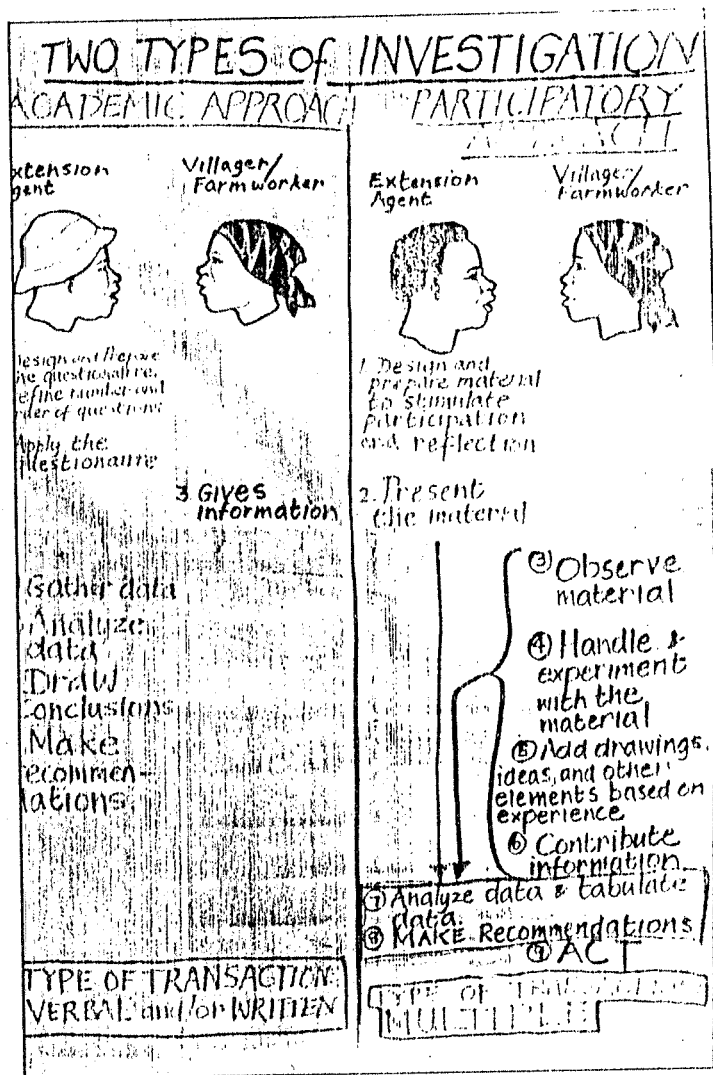 TWO TYPES of INVESTIGATION
ACADEMIC APPROACH
xtension
gent
Villager/
Farmworker
esign and Prepare
he questionaire,
efine number and
rder of questions
Apply the
uestionaire
3. Gives
information
Gather data
Analyze
data
Draw
Conclusions
Make
ecommen-
dations
TYPE OF TRANSACTION:
VERBAL and/or WRITTEN
PARTICIPATORY
Extension
Agent
Villager/
Farmworker
1. Design and
prepare material
to stimulate
participation
and reflection
2. Present
the material
③ Observe
material
④ Handle &
experiment
with the
material
⑤ Add drawings,
ideas, and other
elements based on
experience
⑥ Contribute
information
⑦ Analyze data & tabulate
data.
⑧ MAKE Recommendations
⑨ ACT
TYPE OF
MULTIPLE